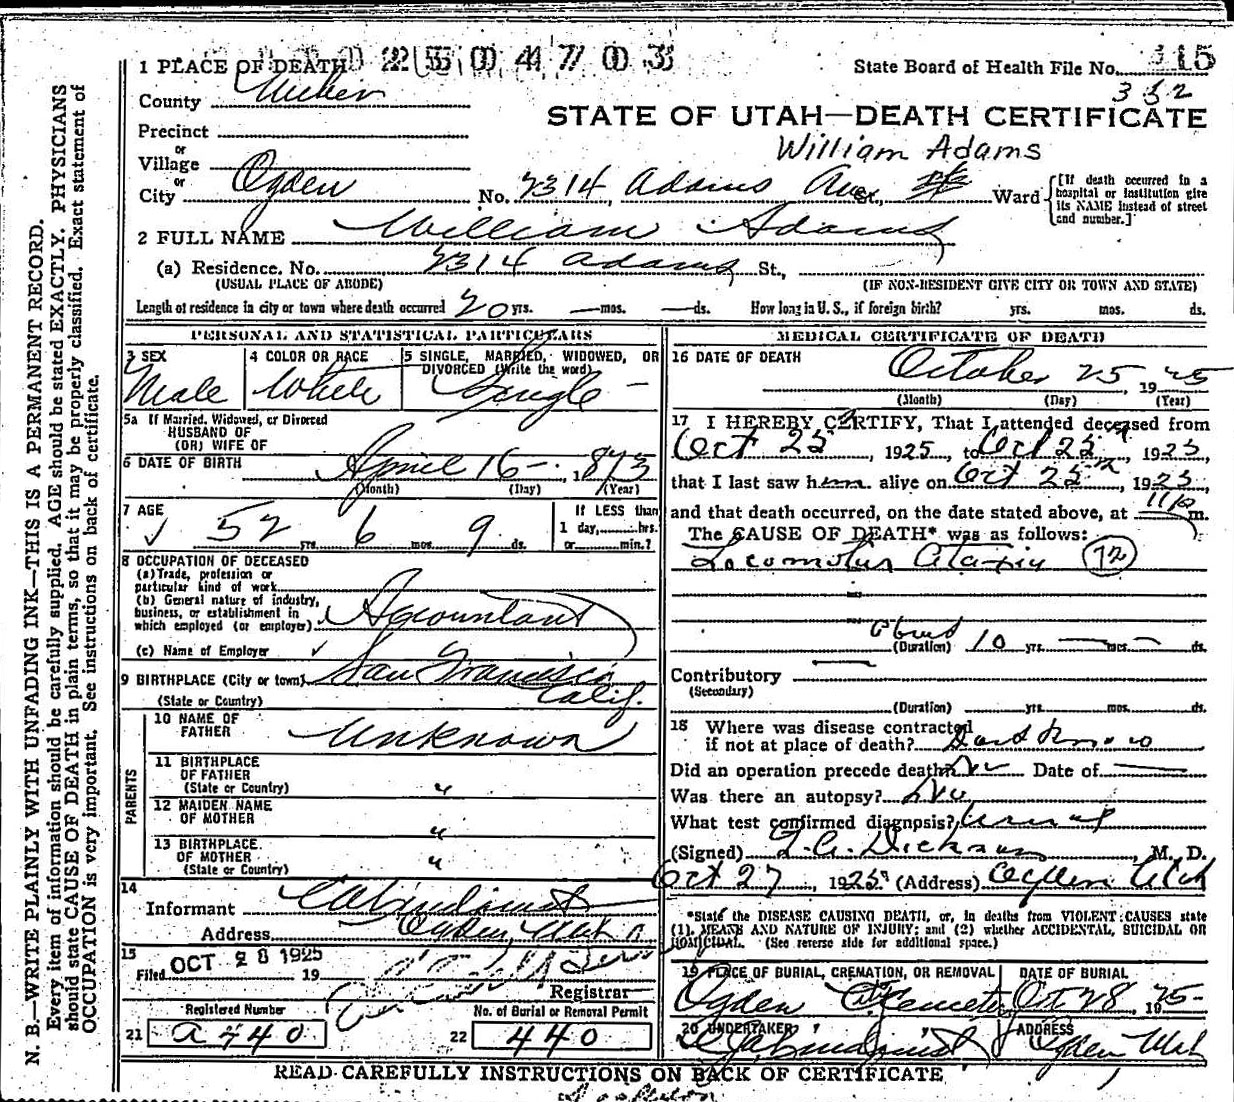 1 PLACE OF DEATH
State Board of Health File No. 115
County Weber
352
STATE OF UTAH—DEATH CERTIFICATE
Precinct
William Adams
or
Village
or
City Ogden No. 2314 Adams Ave St., Ward
[If death occurred in a hospital or institution give its NAME instead of street and number.]
2 FULL NAME William Adams
(a) Residence. No. 2314 Adams St.,
(USUAL PLACE OF ABODE) (IF NON-RESIDENT GIVE CITY OR TOWN AND STATE)
Length of residence in city or town where death occurred 20 yrs. — mos. — ds. How long in U. S., if foreign birth? yrs. mos. ds.
PERSONAL AND STATISTICAL PARTICULARS
3 SEX
Male
4 COLOR OR RACE
White
5 SINGLE, MARRIED, WIDOWED, OR DIVORCED (Write the word)
Single
5a If Married, Widowed, or Divorced
HUSBAND OF
(OR) WIFE OF
6 DATE OF BIRTH April 16 — 1873
(Month) (Day) (Year)
7 AGE 52 yrs. 6 mos. 9 ds.
If LESS than
1 day, hrs.
or min.?
8 OCCUPATION OF DECEASED
(a) Trade, profession or
particular kind of work
(b) General nature of industry,
business, or establishment in
which employed (or employer) Accountant
(c) Name of Employer
9 BIRTHPLACE (City or town) San Francisco
(State or Country) Calif.
PARENTS
10 NAME OF FATHER Unknown
11 BIRTHPLACE OF FATHER (State or Country) "
12 MAIDEN NAME OF MOTHER "
13 BIRTHPLACE OF MOTHER (State or Country) "
14
Informant
Address Ogden, Utah
15
Filed OCT 28 1925 19
Registrar
Registered Number
21 a 440
No. of Burial or Removal Permit
22 440
MEDICAL CERTIFICATE OF DEATH
16 DATE OF DEATH
October 25, 1925
(Month) (Day) (Year)
17 I HEREBY CERTIFY, That I attended deceased from
Oct 25, 1925, to Oct 25, 1925,
that I last saw him alive on Oct 25, 1925,
and that death occurred, on the date stated above, at m.
The CAUSE OF DEATH* was as follows:
Locomotor Ataxia 72
About
(Duration) 10 yrs. — mos. — ds.
Contributory —
(Secondary)
(Duration) yrs. mos. ds.
18 Where was disease contracted
if not at place of death? Dont Know
Did an operation precede death? No Date of —
Was there an autopsy? No
What test confirmed diagnosis?
(Signed) Dickson, M. D.
Oct 27, 1925 (Address) Ogden Utah
*State the DISEASE CAUSING DEATH, or, in deaths from VIOLENT CAUSES state
(1). MEANS AND NATURE OF INJURY; and (2) whether ACCIDENTAL, SUICIDAL OR
HOMICIDAL. (See reverse side for additional space.)
19 PLACE OF BURIAL, CREMATION, OR REMOVAL
Ogden City Cemetery
DATE OF BURIAL
Oct 28, 1925
20 UNDERTAKER
ADDRESS
Ogden Utah
READ CAREFULLY INSTRUCTIONS ON BACK OF CERTIFICATE
N. B.—WRITE PLAINLY WITH UNFADING INK—THIS IS A PERMANENT RECORD.
Every item of information should be carefully supplied. AGE should be stated EXACTLY. PHYSICIANS
should state CAUSE OF DEATH in plain terms, so that it may be properly classified. Exact statement of
OCCUPATION is very important. See instructions on back of certificate.